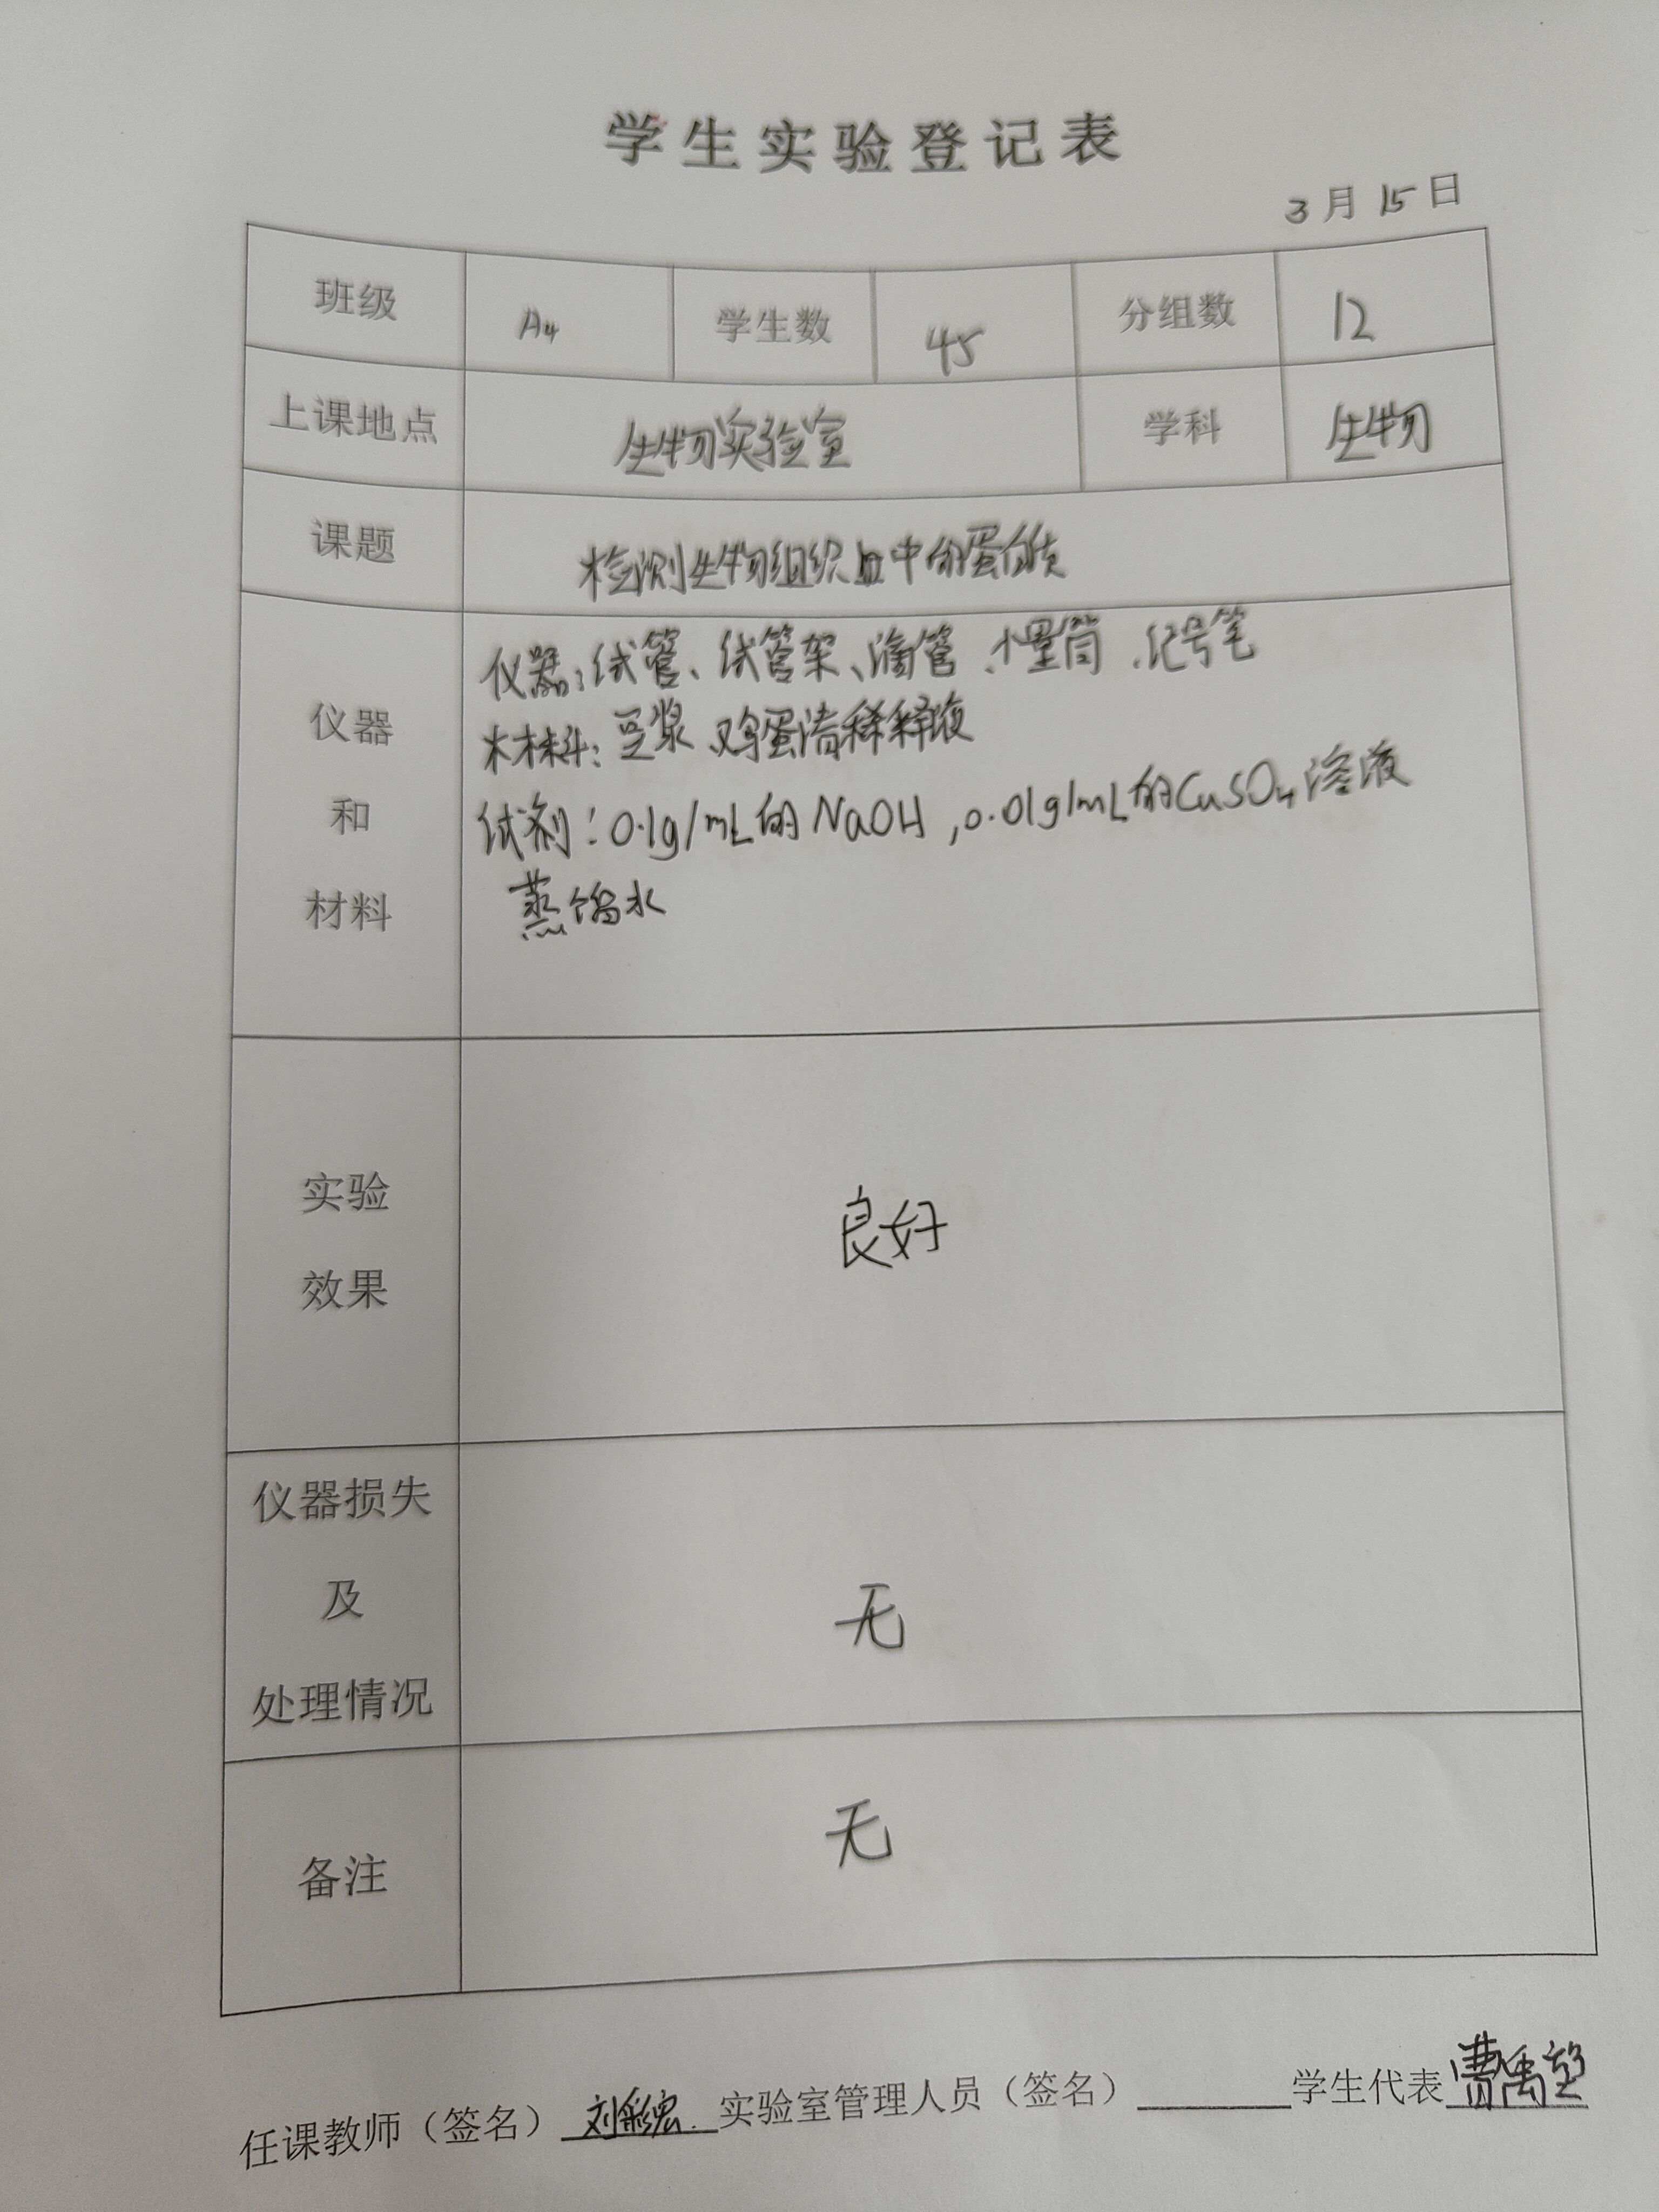 学生实验登记表
3月15日
班级 A4 学生数 45 分组数 12
上课地点 生物实验室 学科 生物
课题 检测生物组织血中的蛋白质
仪器和材料
仪器:试管、试管架、滴管、小量筒、记号笔
材料:豆浆、鸡蛋清稀释液
试剂:0.1g/mL的NaOH,0.01g/mL的CuSO4溶液
蒸馏水
实验效果 良好
仪器损失及处理情况 无
备注 无
任课教师(签名) 刘彩 实验室管理人员(签名) 学生代表 曹禹